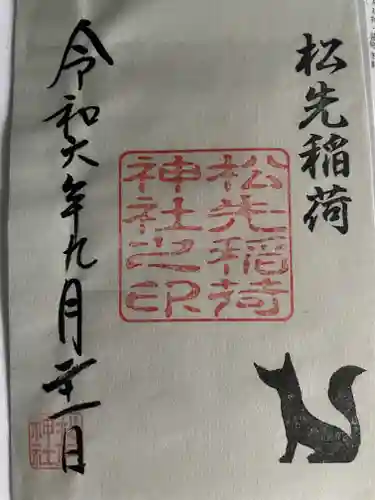 松先稲荷
松先稲荷
神社之印
令和六年九月二十一日